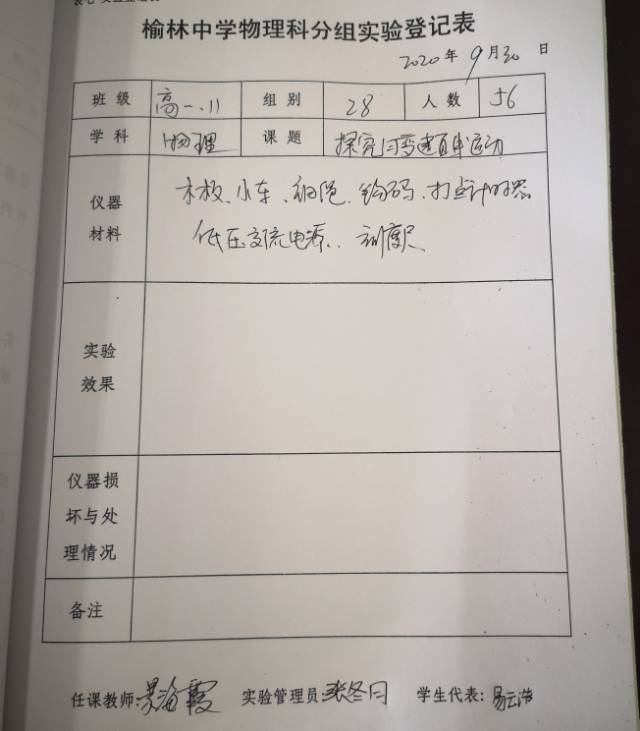 榆林中学物理科分组实验登记表
2020年9月30日
班级 高一.11 组别 28 人数 56
学科 物理 课题 探究匀变速直线运动
仪器材料 木板、小车、细绳、钩码、打点计时器
低压交流电源、刻度尺
实验效果
仪器损坏与处理情况
备注
任课教师:景海霞 实验管理员:张冬月 学生代表:易云浩